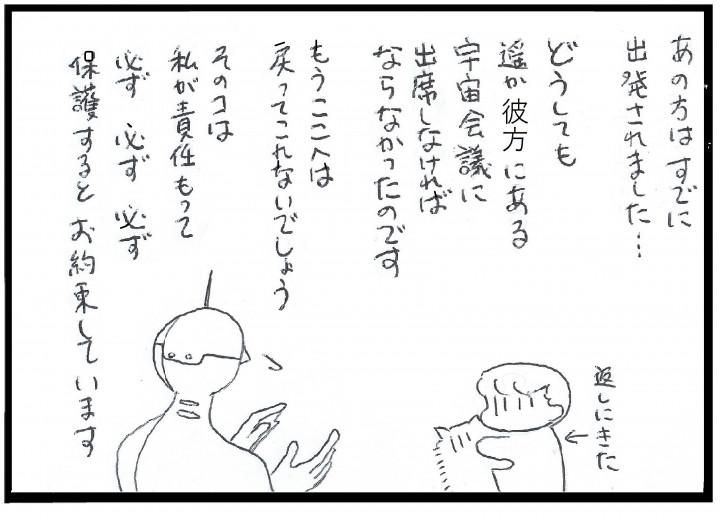 あの方はすでに
出発されました…
どうしても
遥か彼方にある
宇宙会議に
出席しなければ
ならなかったのです
もうここへは
戻ってこれないでしょう
そのコは
私が責任もって
必ず必ず必ず
保護するとお約束しています
返しにきた